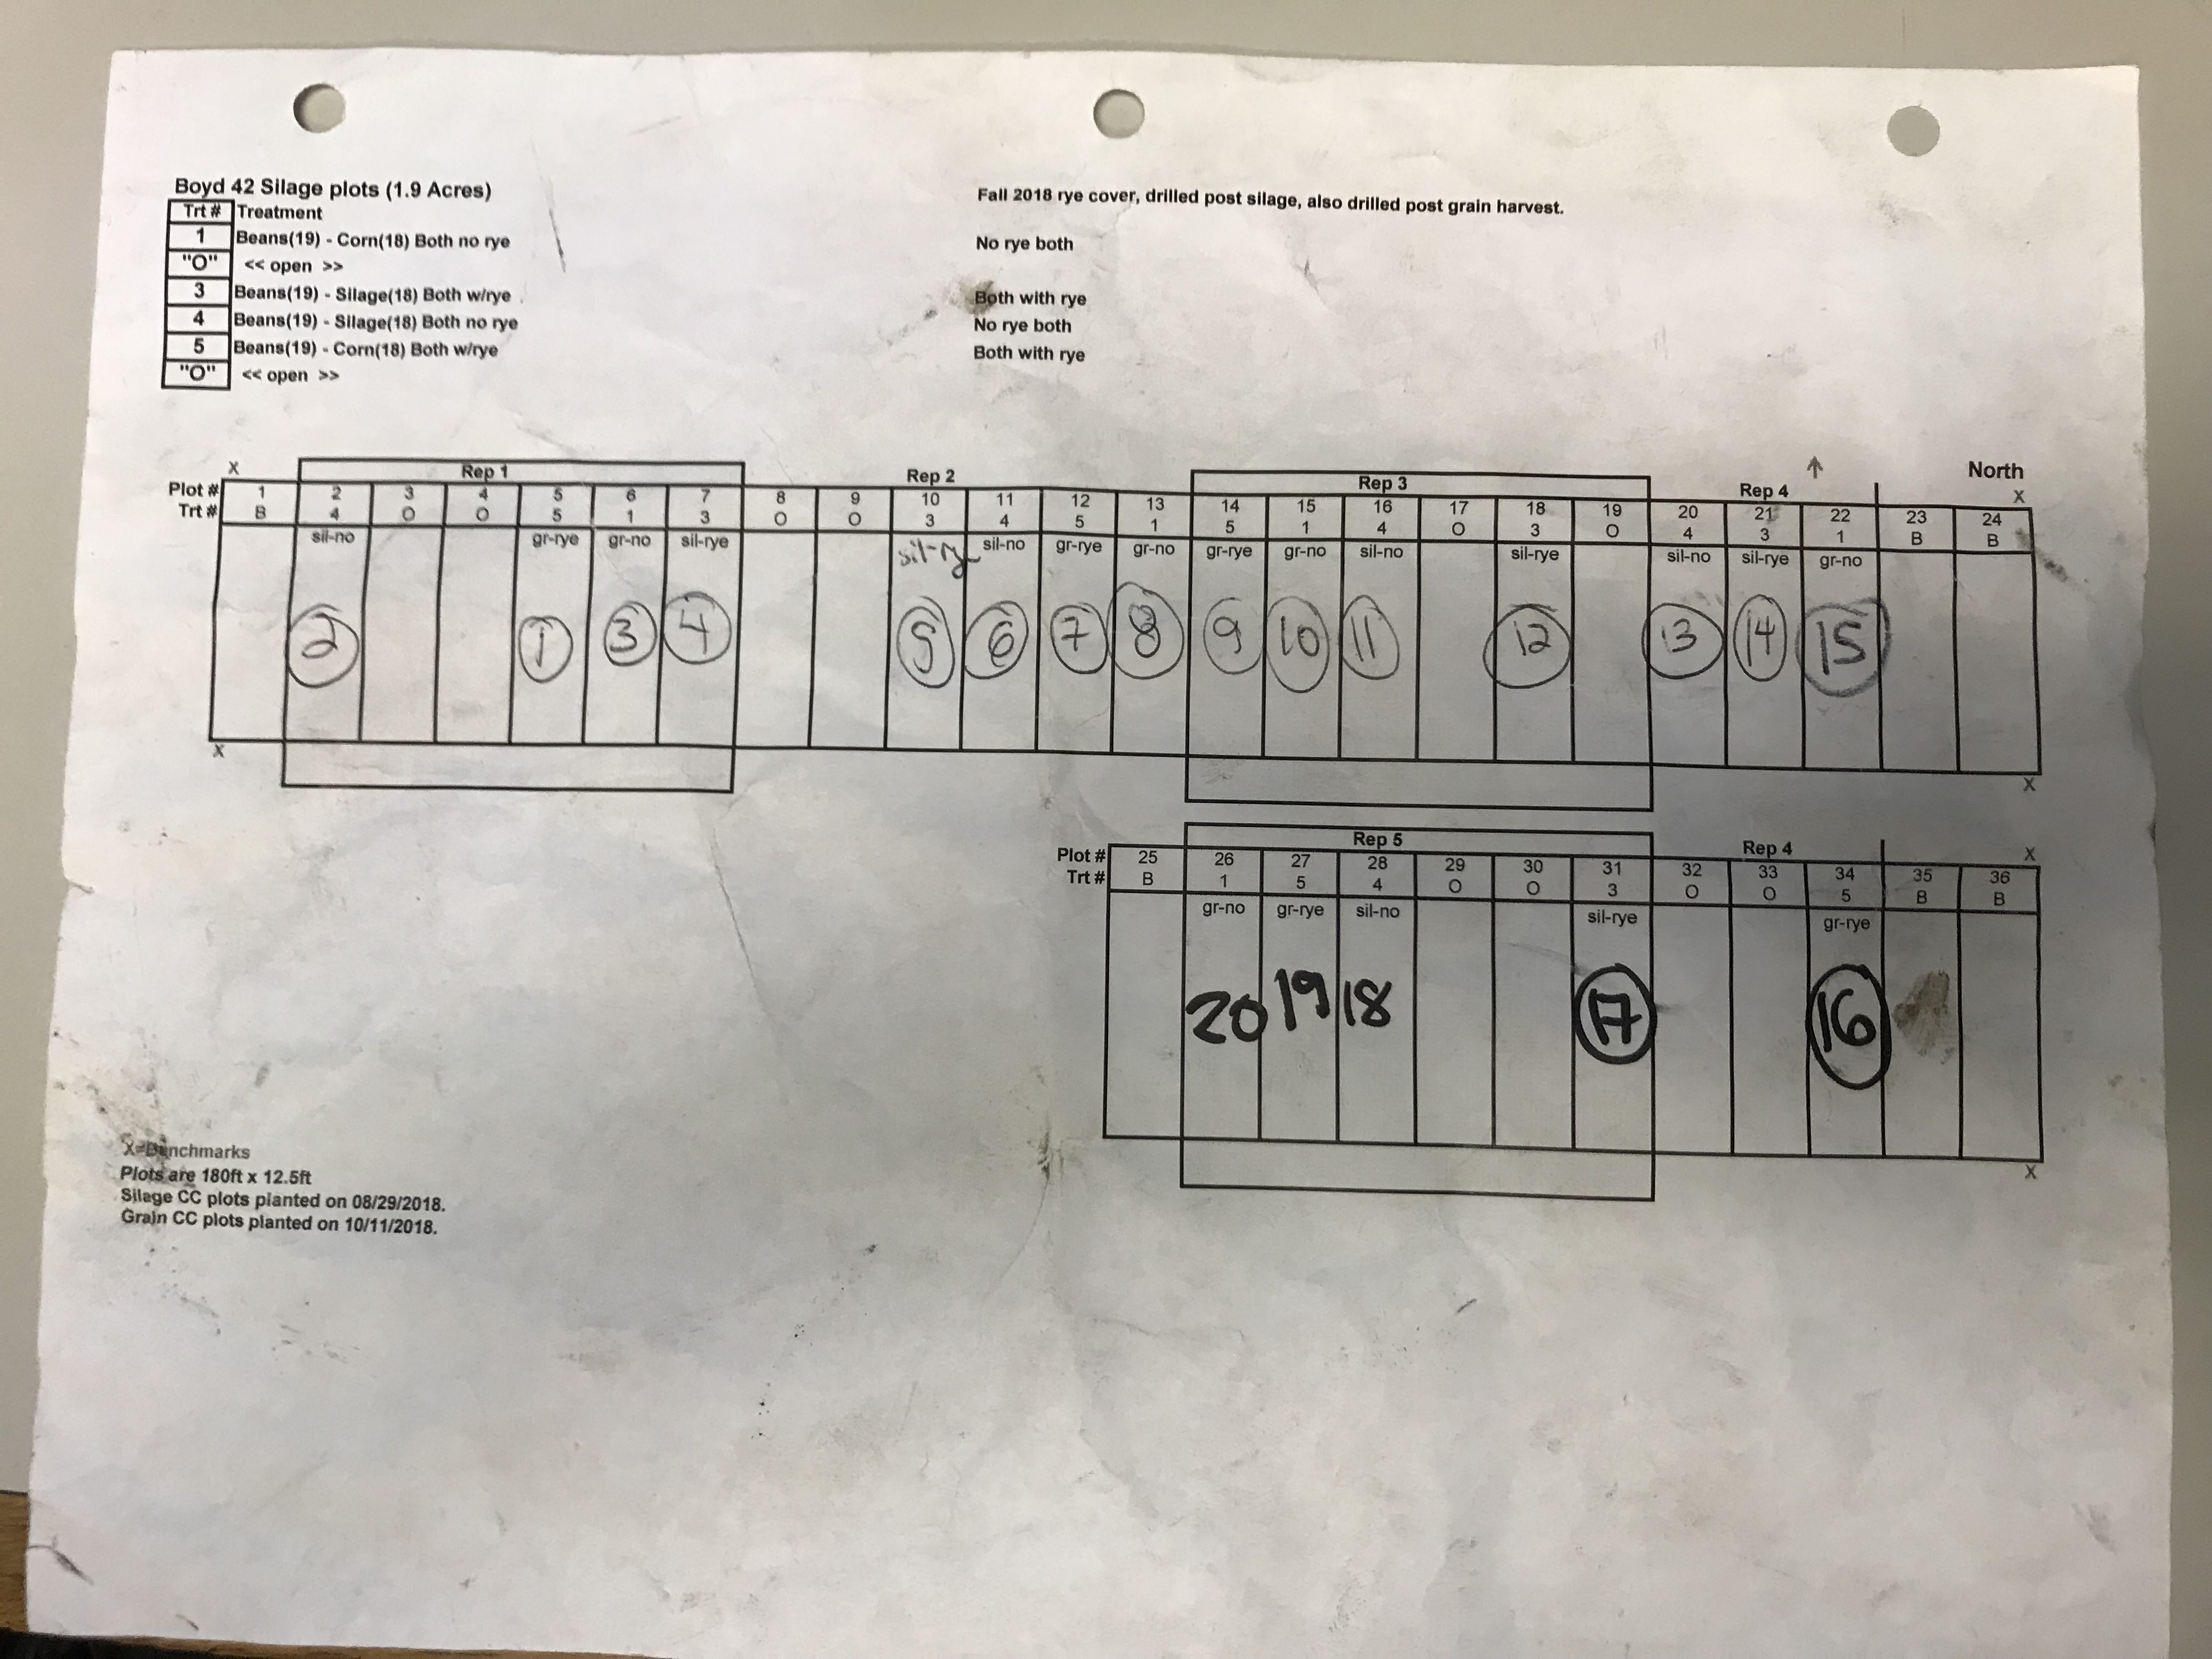 Boyd 42 Silage plots (1.9 Acres)
Fall 2018 rye cover, drilled post silage, also drilled post grain harvest.
Trt # Treatment
1 Beans(19) - Corn(18) Both no rye No rye both
"O" << open >>
3 Beans(19) - Silage(18) Both w/rye Both with rye
4 Beans(19) - Silage(18) Both no rye No rye both
5 Beans(19) - Corn(18) Both w/rye Both with rye
"O" << open >>
X Rep 1 Rep 2 Rep 3 Rep 4 ↑ North X
Plot # 1 2 3 4 5 6 7 8 9 10 11 12 13 14 15 16 17 18 19 20 21 22 23 24
Trt # B 4 O O 5 1 3 O O 3 4 5 1 5 1 4 O 3 O 4 3 1 B B
sil-no gr-rye gr-no sil-rye sil-rye sil-no gr-rye gr-no gr-rye gr-no sil-no sil-rye sil-no sil-rye gr-no
2 1 3 4 5 6 7 8 9 10 11 12 13 14 15
X X
Rep 5 Rep 4 X
Plot # 25 26 27 28 29 30 31 32 33 34 35 36
Trt # B 1 5 4 O O 3 O O 5 B B
gr-no gr-rye sil-no sil-rye gr-rye
20 19 18 17 16
X
X=Benchmarks
Plots are 180ft x 12.5ft
Silage CC plots planted on 08/29/2018.
Grain CC plots planted on 10/11/2018.